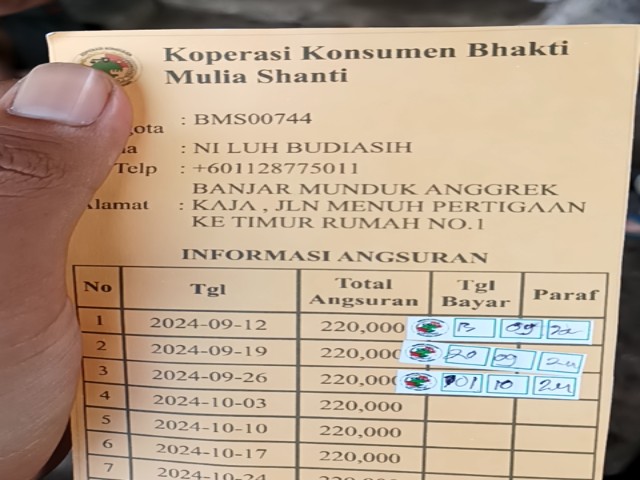 Koperasi Konsumen Bhakti
Mulia Shanti
ota : BMS00744
a : NI LUH BUDIASIH
Telp : +601128775011
BANJAR MUNDUK ANGGREK
Alamat : KAJA , JLN MENUH PERTIGAAN
KE TIMUR RUMAH NO.1
INFORMASI ANGSURAN
No Tgl Total Angsuran Tgl Bayar Paraf
1 2024-09-12 220,000 13 09 24
2 2024-09-19 220,000 20 09 24
3 2024-09-26 220,000 01 10 24
4 2024-10-03 220,000
5 2024-10-10 220,000
6 2024-10-17 220,000
7 2024-10-24 220,000